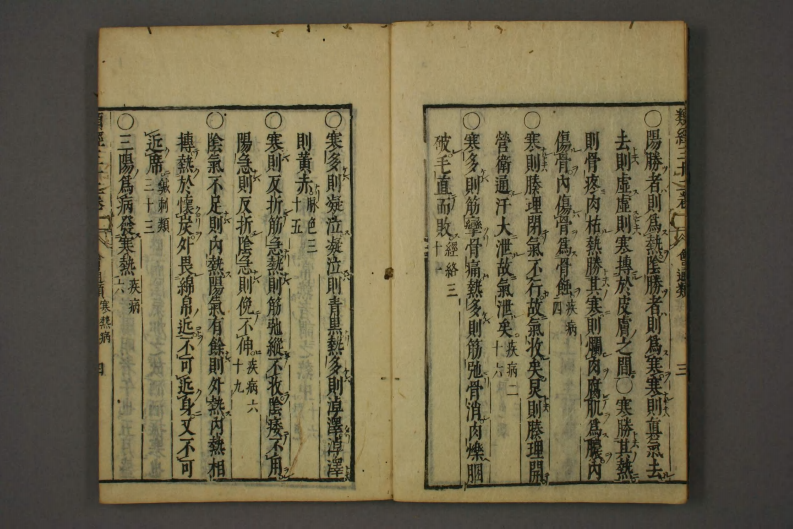 〇陽勝者則爲熱陰勝者則爲寒寒則真氣去
去則虛虛則寒搏於皮膚之間〇寒勝其熱
則骨疼肉枯熱勝其寒則爛肉腐肌爲膿內
傷骨內傷骨爲骨蝕疾病四
〇寒則腠理閉氣不行故氣收矣炅則腠理開
營衛通汗大泄故氣泄矣疾病二十六
〇寒多則筋攣骨痛熱多則筋弛骨消肉爍䐃
破毛直而敗經絡三十一
〇寒多則凝泣凝泣則青黑熱多則淖澤淖澤
則黃赤脉色三十五
〇寒則反折筋急熱則筋弛縱不收陰痿不用
陽急則反折陰急則俛不伸疾病六十九
〇陰氣不足則內熱陽氣有餘則外熱內熱相
搏熱於懷炭外畏綿帛近不可近身又不可
近席鍼刺類三十三
〇三陽爲病發寒熱疾病六
會通類 三
寒熱病 四